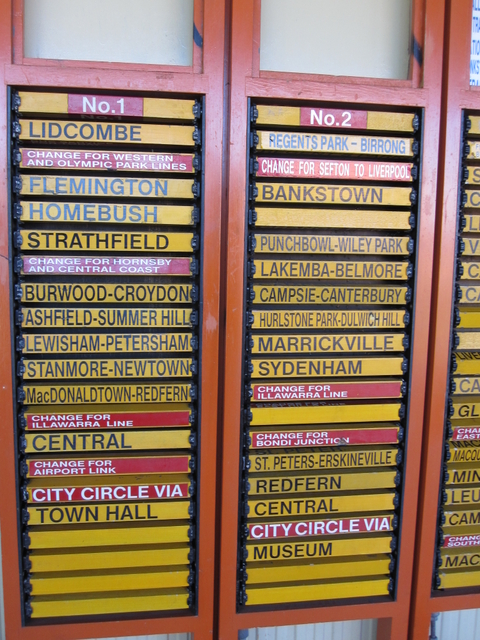 No.1
LIDCOMBE
CHANGE FOR WESTERN
AND OLYMPIC PARK LINES
FLEMINGTON
HOMEBUSH
STRATHFIELD
CHANGE FOR HORNSBY
AND CENTRAL COAST
BURWOOD-CROYDON
ASHFIELD-SUMMER HILL
LEWISHAM-PETERSHAM
STANMORE-NEWTOWN
MacDONALDTOWN-REDFERN
CHANGE FOR
ILLAWARRA LINE
CENTRAL
CHANGE FOR
AIRPORT LINK
CITY CIRCLE VIA
TOWN HALL
No.2
REGENTS PARK-BIRRONG
CHANGE FOR SEFTON TO LIVERPOOL
BANKSTOWN
PUNCHBOWL-WILEY PARK
LAKEMBA-BELMORE
CAMPSIE-CANTERBURY
HURLSTONE PARK-DULWICH HILL
MARRICKVILLE
SYDENHAM
CHANGE FOR
ILLAWARRA LINE
CHANGE FOR
BONDI JUNCTION
ST. PETERS-ERSKINEVILLE
REDFERN
CENTRAL
CITY CIRCLE VIA
MUSEUM